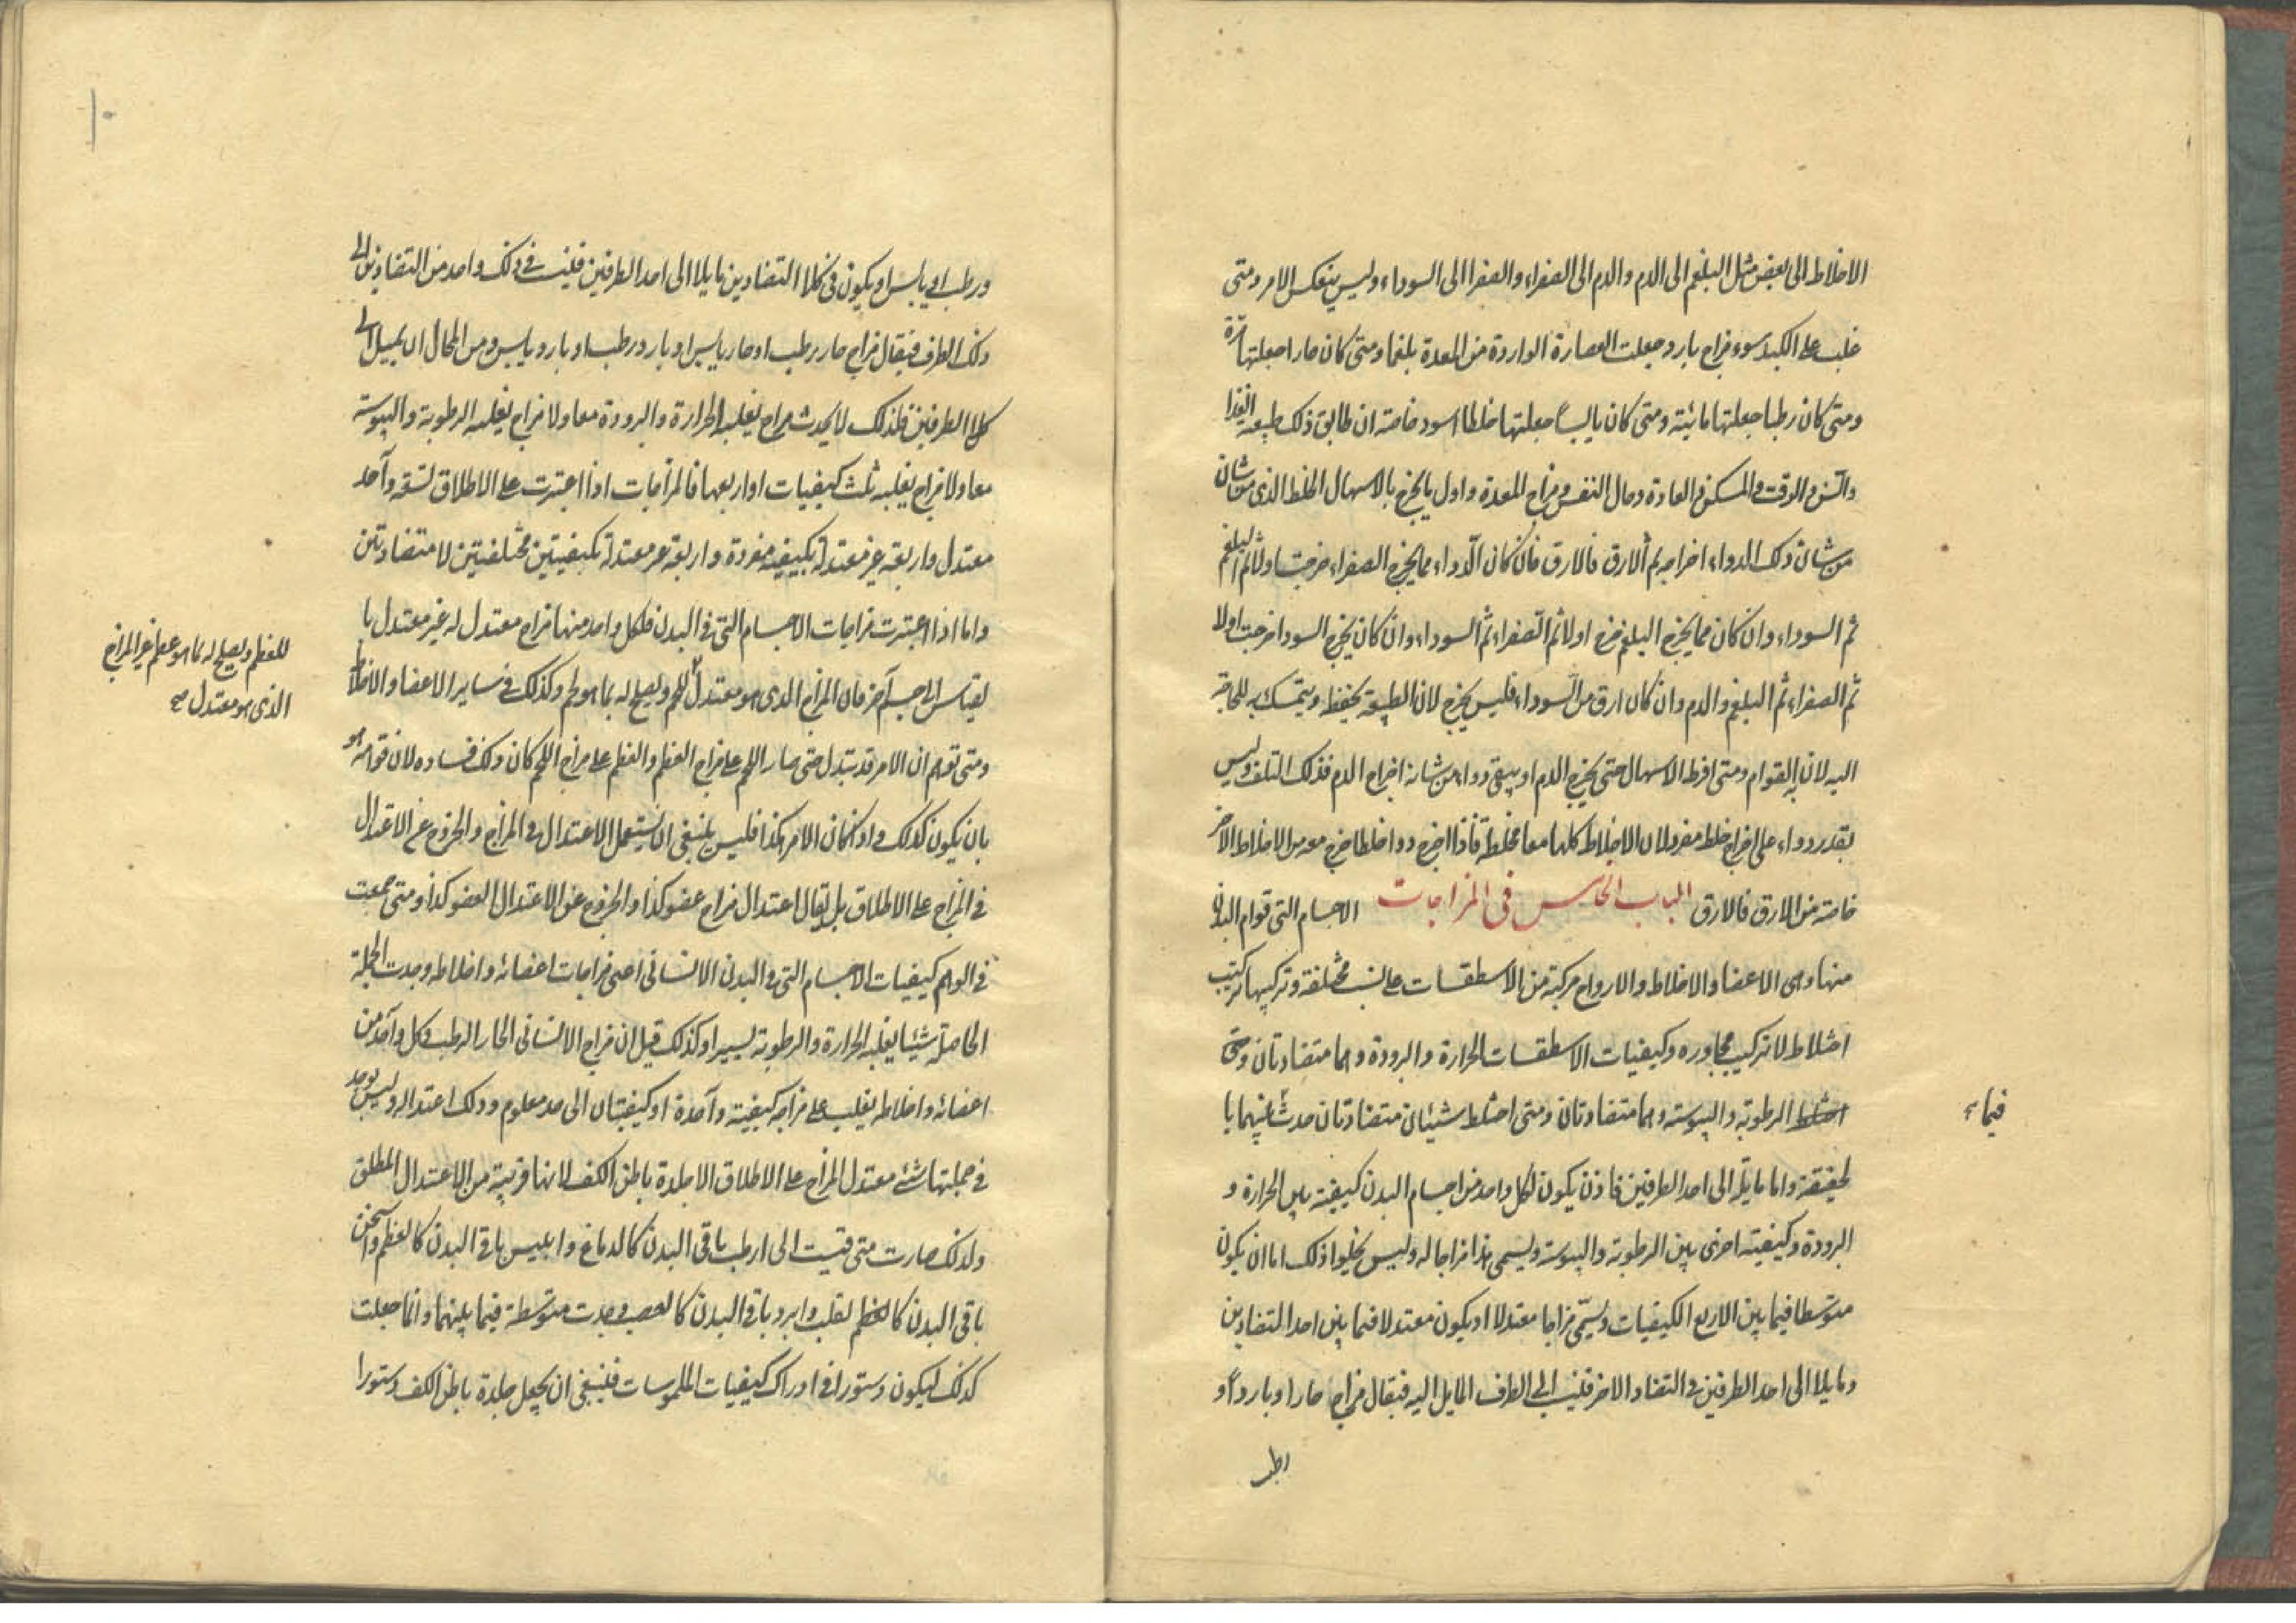 الاخلاط الى بعض مثل البلغم الى الدم والدم الى الصفراء والصفرا الى السوداء وليس ينعكس الامر ومتى
غلب على الكبد سوء مزاج بارد جعلت العصارة الواردة من المعدة بلغما ومتى كان حارا جعلتها مرة
ومتى كان رطبا جعلتها مائية ومتى كان يابسا جعلتها خلطا اسود خاصة ان طابق ذلك طبيعة الغذا
والسن والوقت والمسكن والعادة وحال النفس ومزاج المعدة واول ما يخرج بالاسهال الخلط الذى من شان
من شان ذلك الدواء اخراجه ثم الارق فالارق فان كان الدواء مما يخرج الصفراء خرجت اولا ثم البلغم
ثم السوداء وان كان مما يخرج البلغم خرج اولا ثم الصفراء ثم السوداء وان كان يخرج السودا خرجت اولا
ثم الصفراء ثم البلغم والدم وان كان ارق من السوداء فليس يخرج لان الطبيعة تحفظه وتتمسك به للحاجة
اليه لان به القوام ومتى افرط الاسهال حتى يخرج الدم او يسقى دواء من شانه اخراج الدم فذلك التلف وليس
يقدر دواء على اخراج خلط مفرد لان الاخلاط كلها معا مختلطة فاذا اخرج دوا خلطا خرج معه من الاخلاط الاخر
خاصة من الارق فالارق الباب الخامس فى المزاجات الاجسام التى قوام البدن
منها وهى الاعضا والاخلاط والارواح مركبة من الاسطقسات على نسب مختلفة وتركيبها تركيب
اختلاط لا تركيب مجاوره وكيفيات الاسطقسات الحرارة والبرودة وهما متضادتان ومتى
اختلط الرطوبة واليبوسة وهما متضادتان ومتى اختلط شيئان متضادتان حدث بينهما ما
فيما
لحقيقة واما مايلة الى احد الطرفين فاذن يكون لكل واحد من اجسام البدن كيفية بين الحرارة و
البرودة وكيفية اخرى بين الرطوبة واليبوسة ويسمى هذا مزاجا له وليس يخلوا ذلك اما ان يكون
متوسطا فيما بين الاربع الكيفيات ويسمى مزاجا معتدلا او يكون معتدلا فيما بين احد التضادين
ومايلا الى احد الطرفين فى التضاد الاخر فينسب الى الطرف المايل اليه فيقال مزاج حارا او باردا و
رطب
١٠
ورطب او يابس او يكون فى كلا التضادين مايلا الى احد الطرفين فينسب فى ذلك واحد من التضادين الى
ذلك الطرف فيقال مزاج حار رطب او حار يابس او بارد رطب او بارد يابس ومن المحال ان يميل الى
كلا الطرفين فلذلك لا يحدث مزاج يغلبه الحرارة والبرودة معا ولا مزاج يغلبه الرطوبة واليبوسة
معا ولا مزاج يغلبه ثلث كيفيات او اربعها فالمزاجات اذا اعتبرت على الاطلاق تسعة واحد
معتدل واربعة غير معتدلة بكيفية مفردة واربعة غير معتدلة بكيفيتين مختلفتين لا متضادتين
واما اذا اعتبرت مزاجات الاجسام التى فى البدن فلكل واحد منها مزاج معتدل له غير معتدل ما
يقاس الى جسم آخر فان المزاج الذى هو معتدل للحم ويصلح له بما هو لحم وكذلك فى ساير الاعضا والاخلاط
للعظم ويصلح له بما هو عظم غير المزاج
الذى هو معتدل صح
ومتى توهم ان الامر قد تبدل حتى صار اللحم على مزاج العظم والعظم على مزاج اللحم كان ذلك فساده لان قوامه هو
بان يكون كذلك واذا كان الامر هكذا فليس ينبغى ان يستعمل الاعتدال فى المزاج والخروج عن الاعتدال
فى المزاج على الاطلاق بل يقال اعتدال مزاج عضو كذا والخروج عن الاعتدال العضو كذا ومتى جمعت
فى الوهم كيفيات الاجسام التى فى البدن الانسانى اعنى مزاجات اعضائه واخلاطه وجدت الجملة
الحاصلة شيئا يغلبه الحرارة والرطوبة يسيرا وكذلك قيل ان مزاج الانسانى الحار الرطب وكل واحد من
اعضائه واخلاطه يغلب على مزاجه كيفية واحدة او كيفيتان الى حد معلوم وذلك اعتداله وليس يوجد
فى جملتها شئ معتدل المزاج على الاطلاق الا جلدة باطن الكف لانها قريبة من الاعتدال المطلق
ولذلك صارت متى قيست الى ارطب باقى البدن كالدماغ وايبس باقى البدن كالعظم واسخن
باقى البدن كالعظم لقلب وابرد باقى البدن كالعصب وجدت متوسطة فيما بينهما وانما جعلت
كذلك ليكون دستورا فى ادراك كيفيات الملموسات فينبغى ان يجعل جلدة باطن الكف دستورا